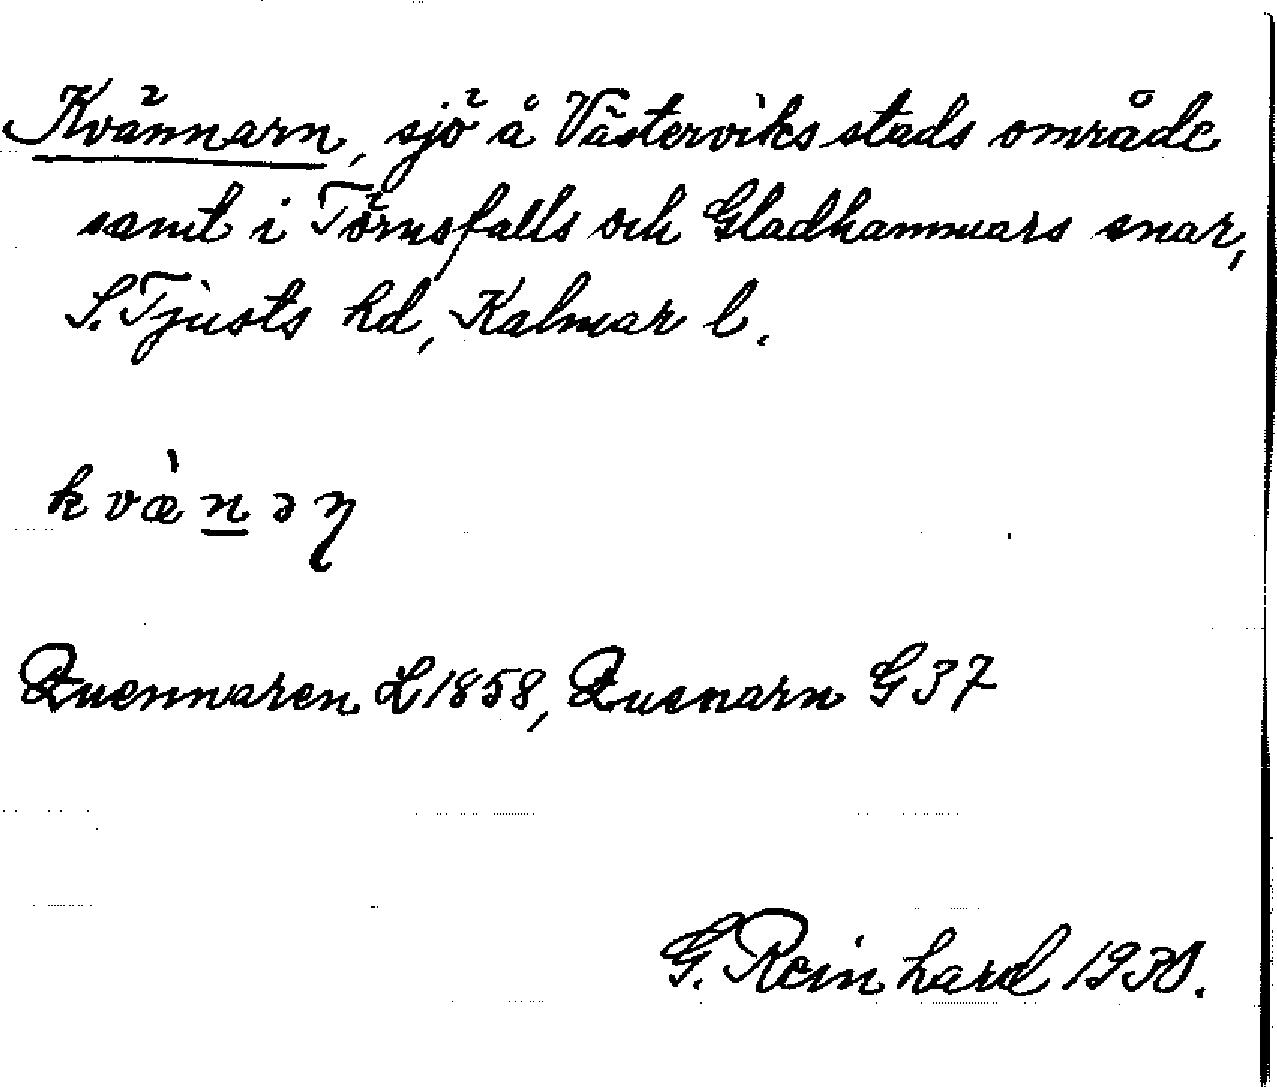 Kvännarn, sjö å Västerviks stads område
samt i Törnsfalls och Gladhammars snar,
S. Tjusts hd, Kalmar l.
kvæ̀nəη
Quennaren L 1858, Quenarn G 37
G. Reinhard 1938.